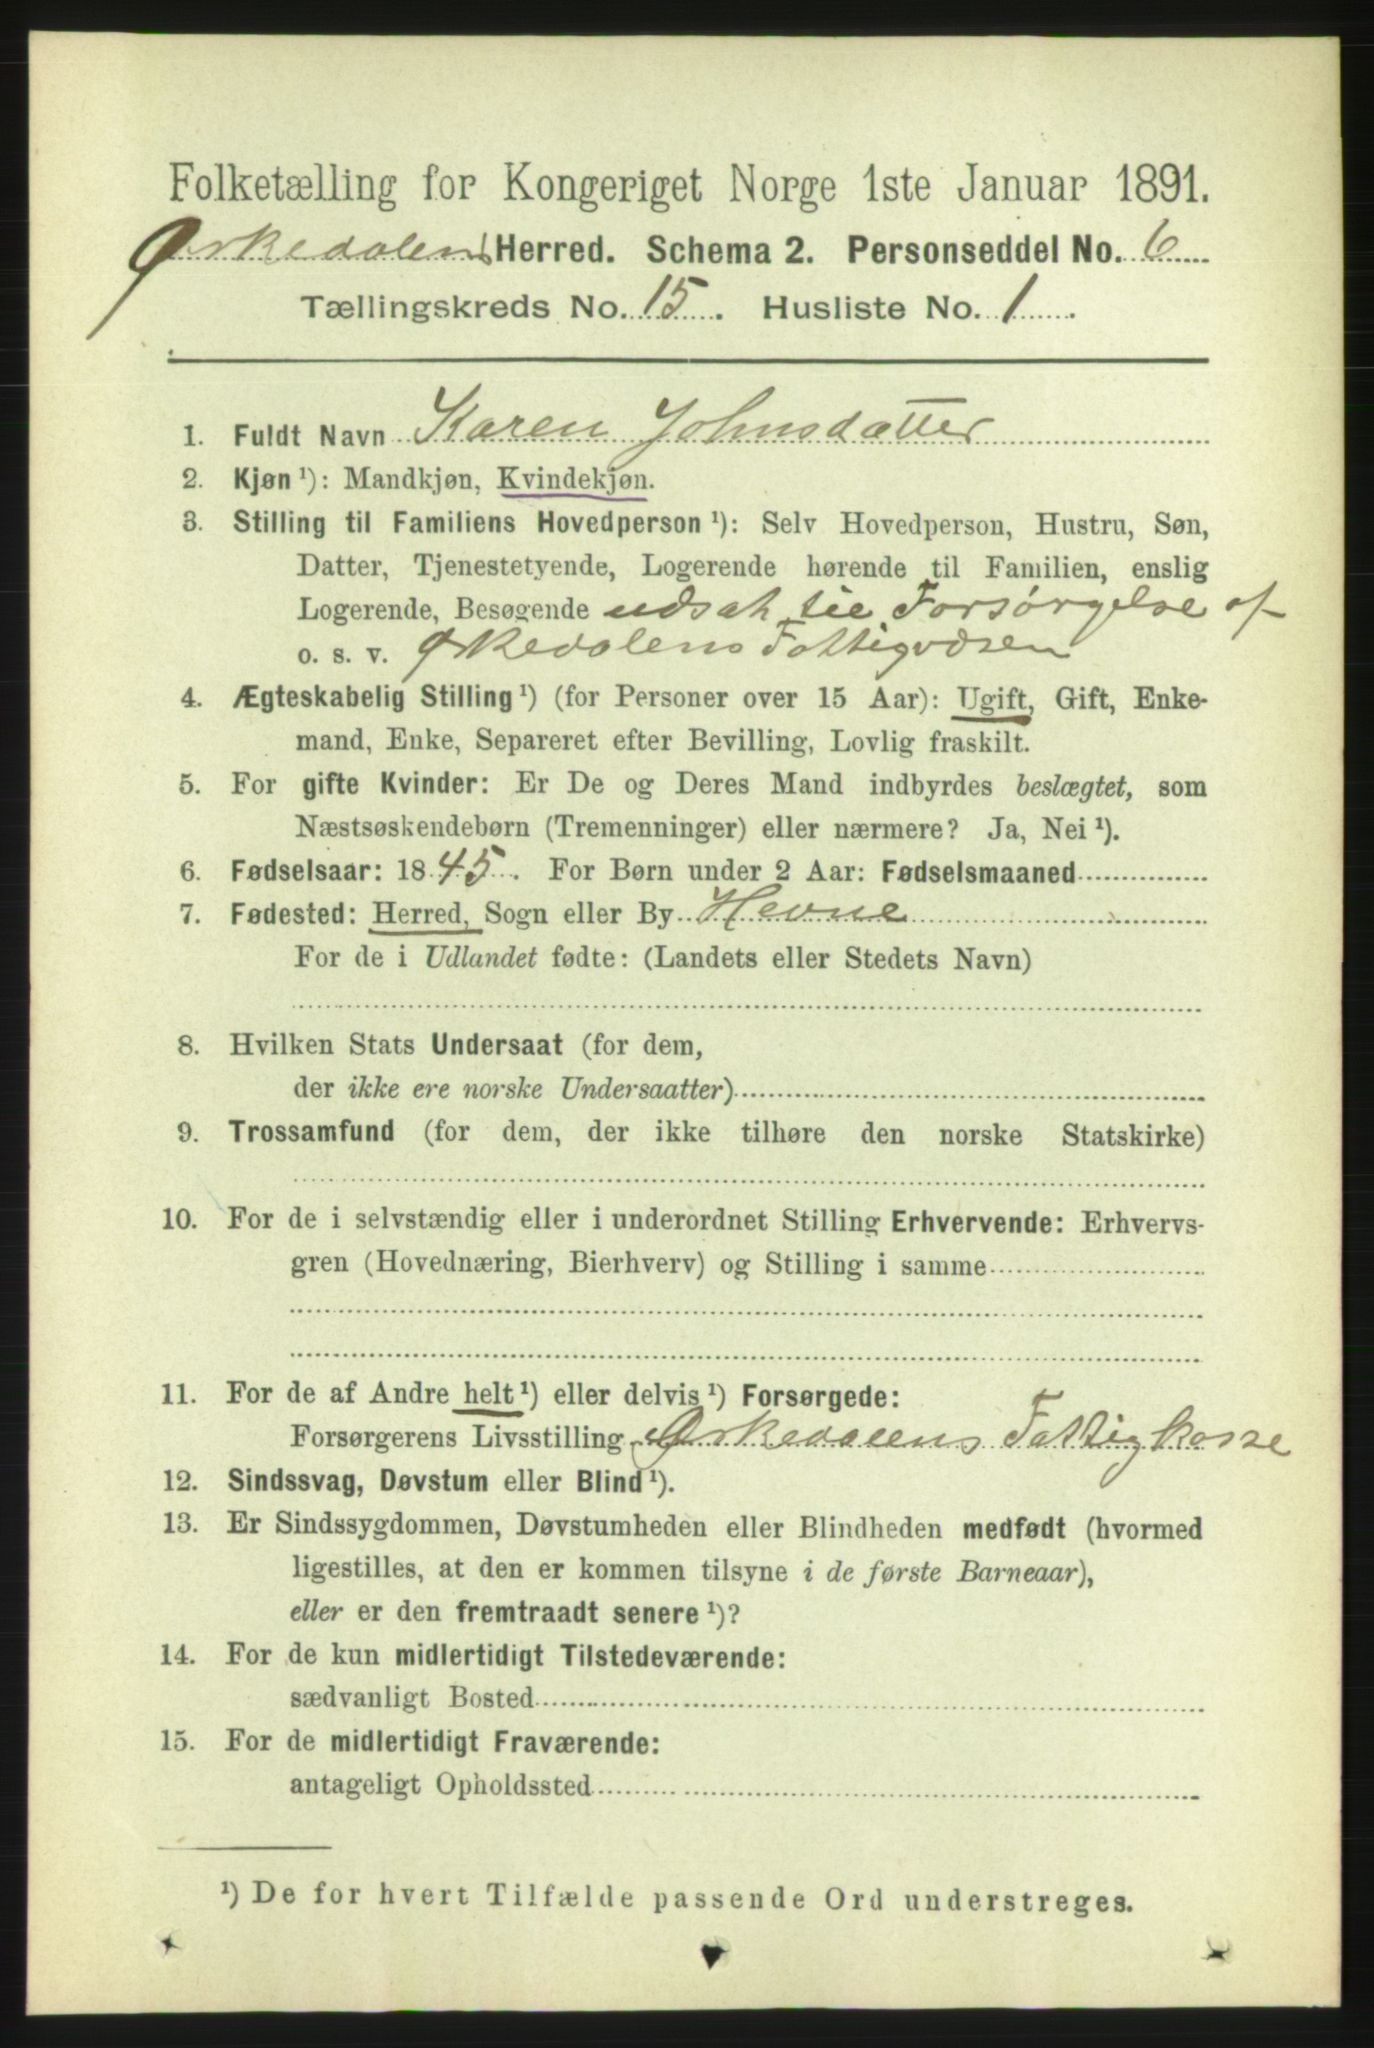 Folketælling for Kongeriget Norge 1ste Januar 1891.
Ørkedalens Herred. Schema 2. Personseddel No. 6
Tællingskreds No. 15. Husliste No. 1.
1. Fuldt Navn Karen Johnsdatter
2. Kjøn ¹): Mandkjøn, Kvindekjøn.
3. Stilling til Familiens Hovedperson ¹): Selv Hovedperson, Hustru, Søn,
Datter, Tjenestetyende, Logerende hørende til Familien, enslig
Logerende, Besøgende udsat til Forsørgelse af
o. s. v. Ørkedalens Fattigvæsen
4. Ægteskabelig Stilling ¹) (for Personer over 15 Aar): Ugift, Gift, Enke-
mand, Enke, Separeret efter Bevilling, Lovlig fraskilt.
5. For gifte Kvinder: Er De og Deres Mand indbyrdes beslægtet, som
Næstsøskendebørn (Tremenninger) eller nærmere? Ja, Nei ¹).
6. Fødselsaar: 1845. For Børn under 2 Aar: Fødselsmaaned
7. Fødested: Herred, Sogn eller By Hevne
For de i Udlandet fødte: (Landets eller Stedets Navn)
8. Hvilken Stats Undersaat (for dem,
der ikke ere norske Undersaatter)
9. Trossamfund (for dem, der ikke tilhøre den norske Statskirke)
10. For de i selvstændig eller i underordnet Stilling Erhvervende: Erhvervs-
gren (Hovednæring, Bierhverv) og Stilling i samme
11. For de af Andre helt ¹) eller delvis ¹) Forsørgede:
Forsørgerens Livsstilling Ørkedalens Fattigkasse
12. Sindssvag, Døvstum eller Blind ¹).
13. Er Sindssygdommen, Døvstumheden eller Blindheden medfødt (hvormed
ligestilles, at den er kommen tilsyne i de første Barneaar),
eller er den fremtraadt senere ¹)?
14. For de kun midlertidigt Tilstedeværende:
sædvanligt Bosted
15. For de midlertidigt Fraværende:
antageligt Opholdssted
¹) De for hvert Tilfælde passende Ord understreges.